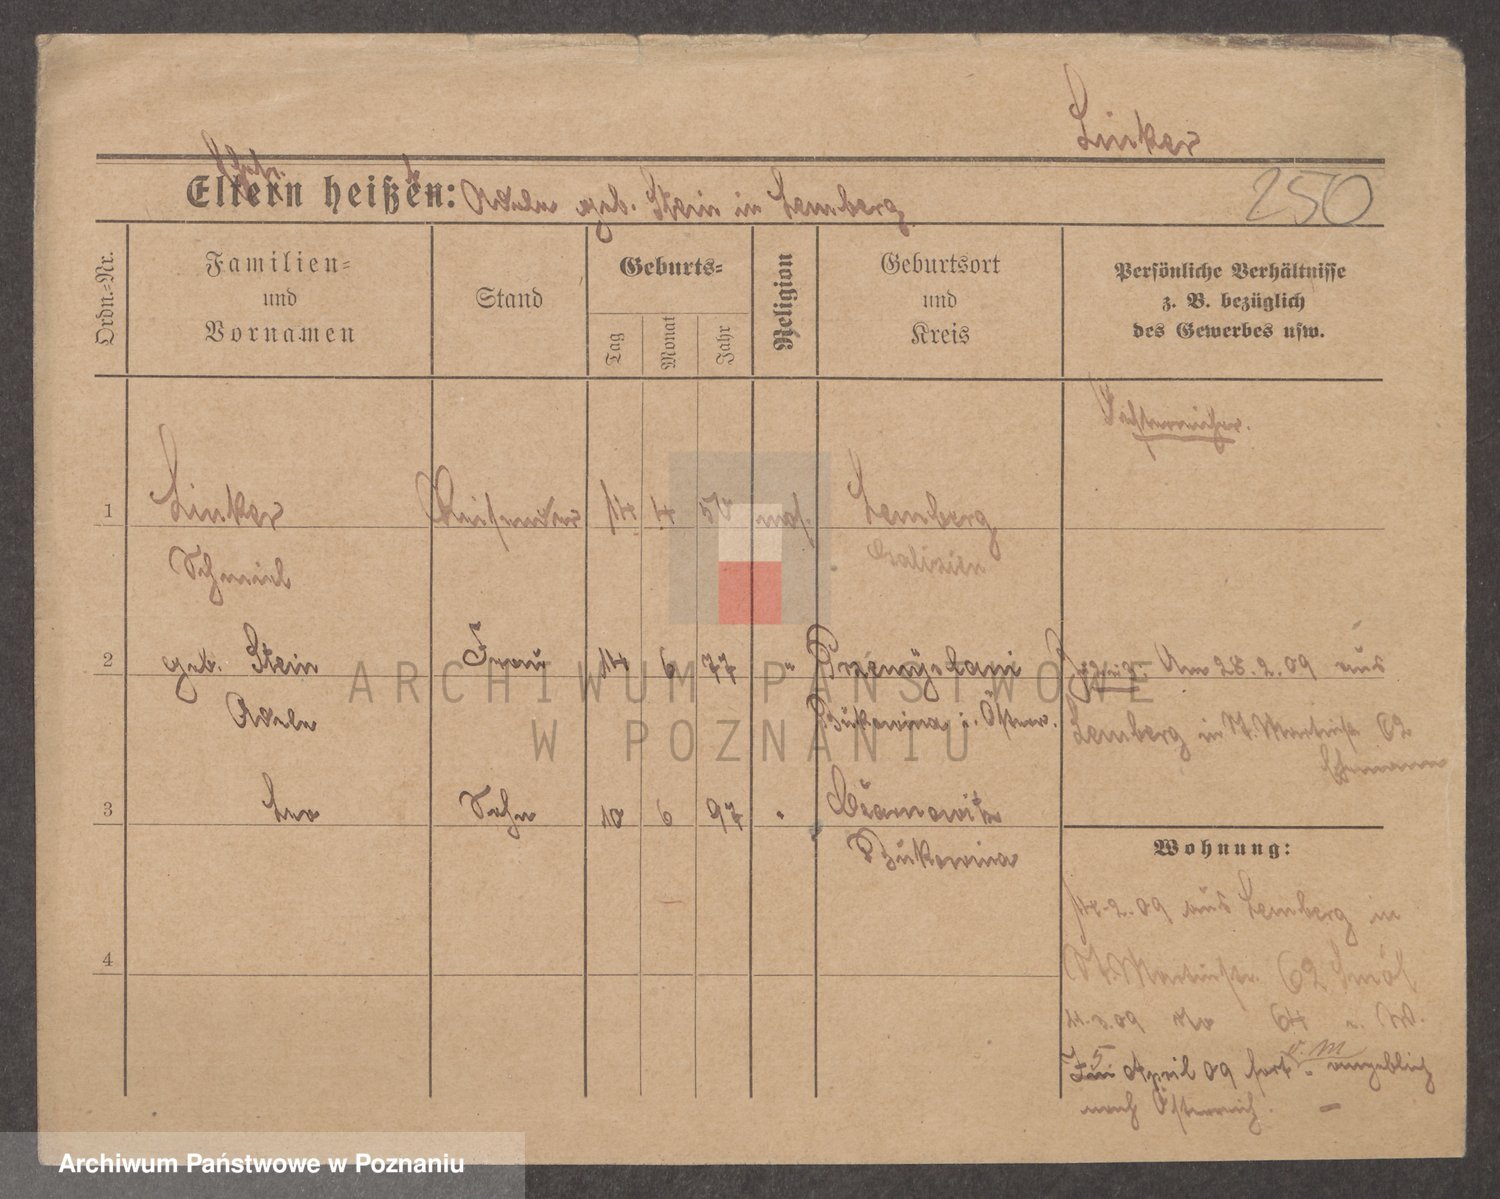 Linker
Eltern heißen: Adele geb. Stein in Lemberg
250
Ordn.-Nr.
Familien-
und
Vornamen
Stand
Geburts-
Tag
Monat
Jahr
Religion
Geburtsort
und
Kreis
Persönliche Verhältnisse
z. B. bezüglich
des Gewerbes usw.
Oesterreicher.
1 Linker Reisender 14 4 mos. Lemberg
Schmiel Galizien
2 geb. Stein Frau 14 6 77 " Przemyslani 28.2.09 aus
Adele Bukowina i. Österr. Lemberg in St. Martinstr. 62
Ehemann
3 Leo Sohn 10 6 97 " Czernowitz
Bukowina
Wohnung:
2.09 aus Lemberg in
St. Martinstr. 62
09 64 W.
4
April 09 fort angeblich
nach Österreich. –
ARCHIWUM PAŃSTWOWE
W POZNANIU
Archiwum Państwowe w Poznaniu